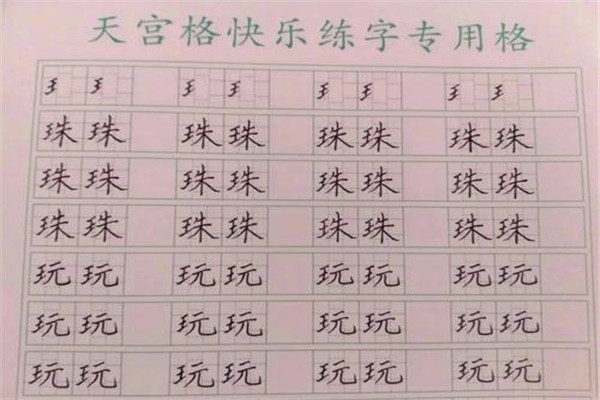 天宫格快乐练字专用格
𤣩 𤣩 𤣩 𤣩 𤣩 𤣩 𤣩 𤣩
珠珠 珠珠 珠珠 珠珠
珠珠 珠珠 珠珠 珠珠
珠珠 珠珠 珠珠 珠珠
玩玩 玩玩 玩玩 玩玩
玩玩 玩玩 玩玩 玩玩
玩玩 玩玩 玩玩 玩玩